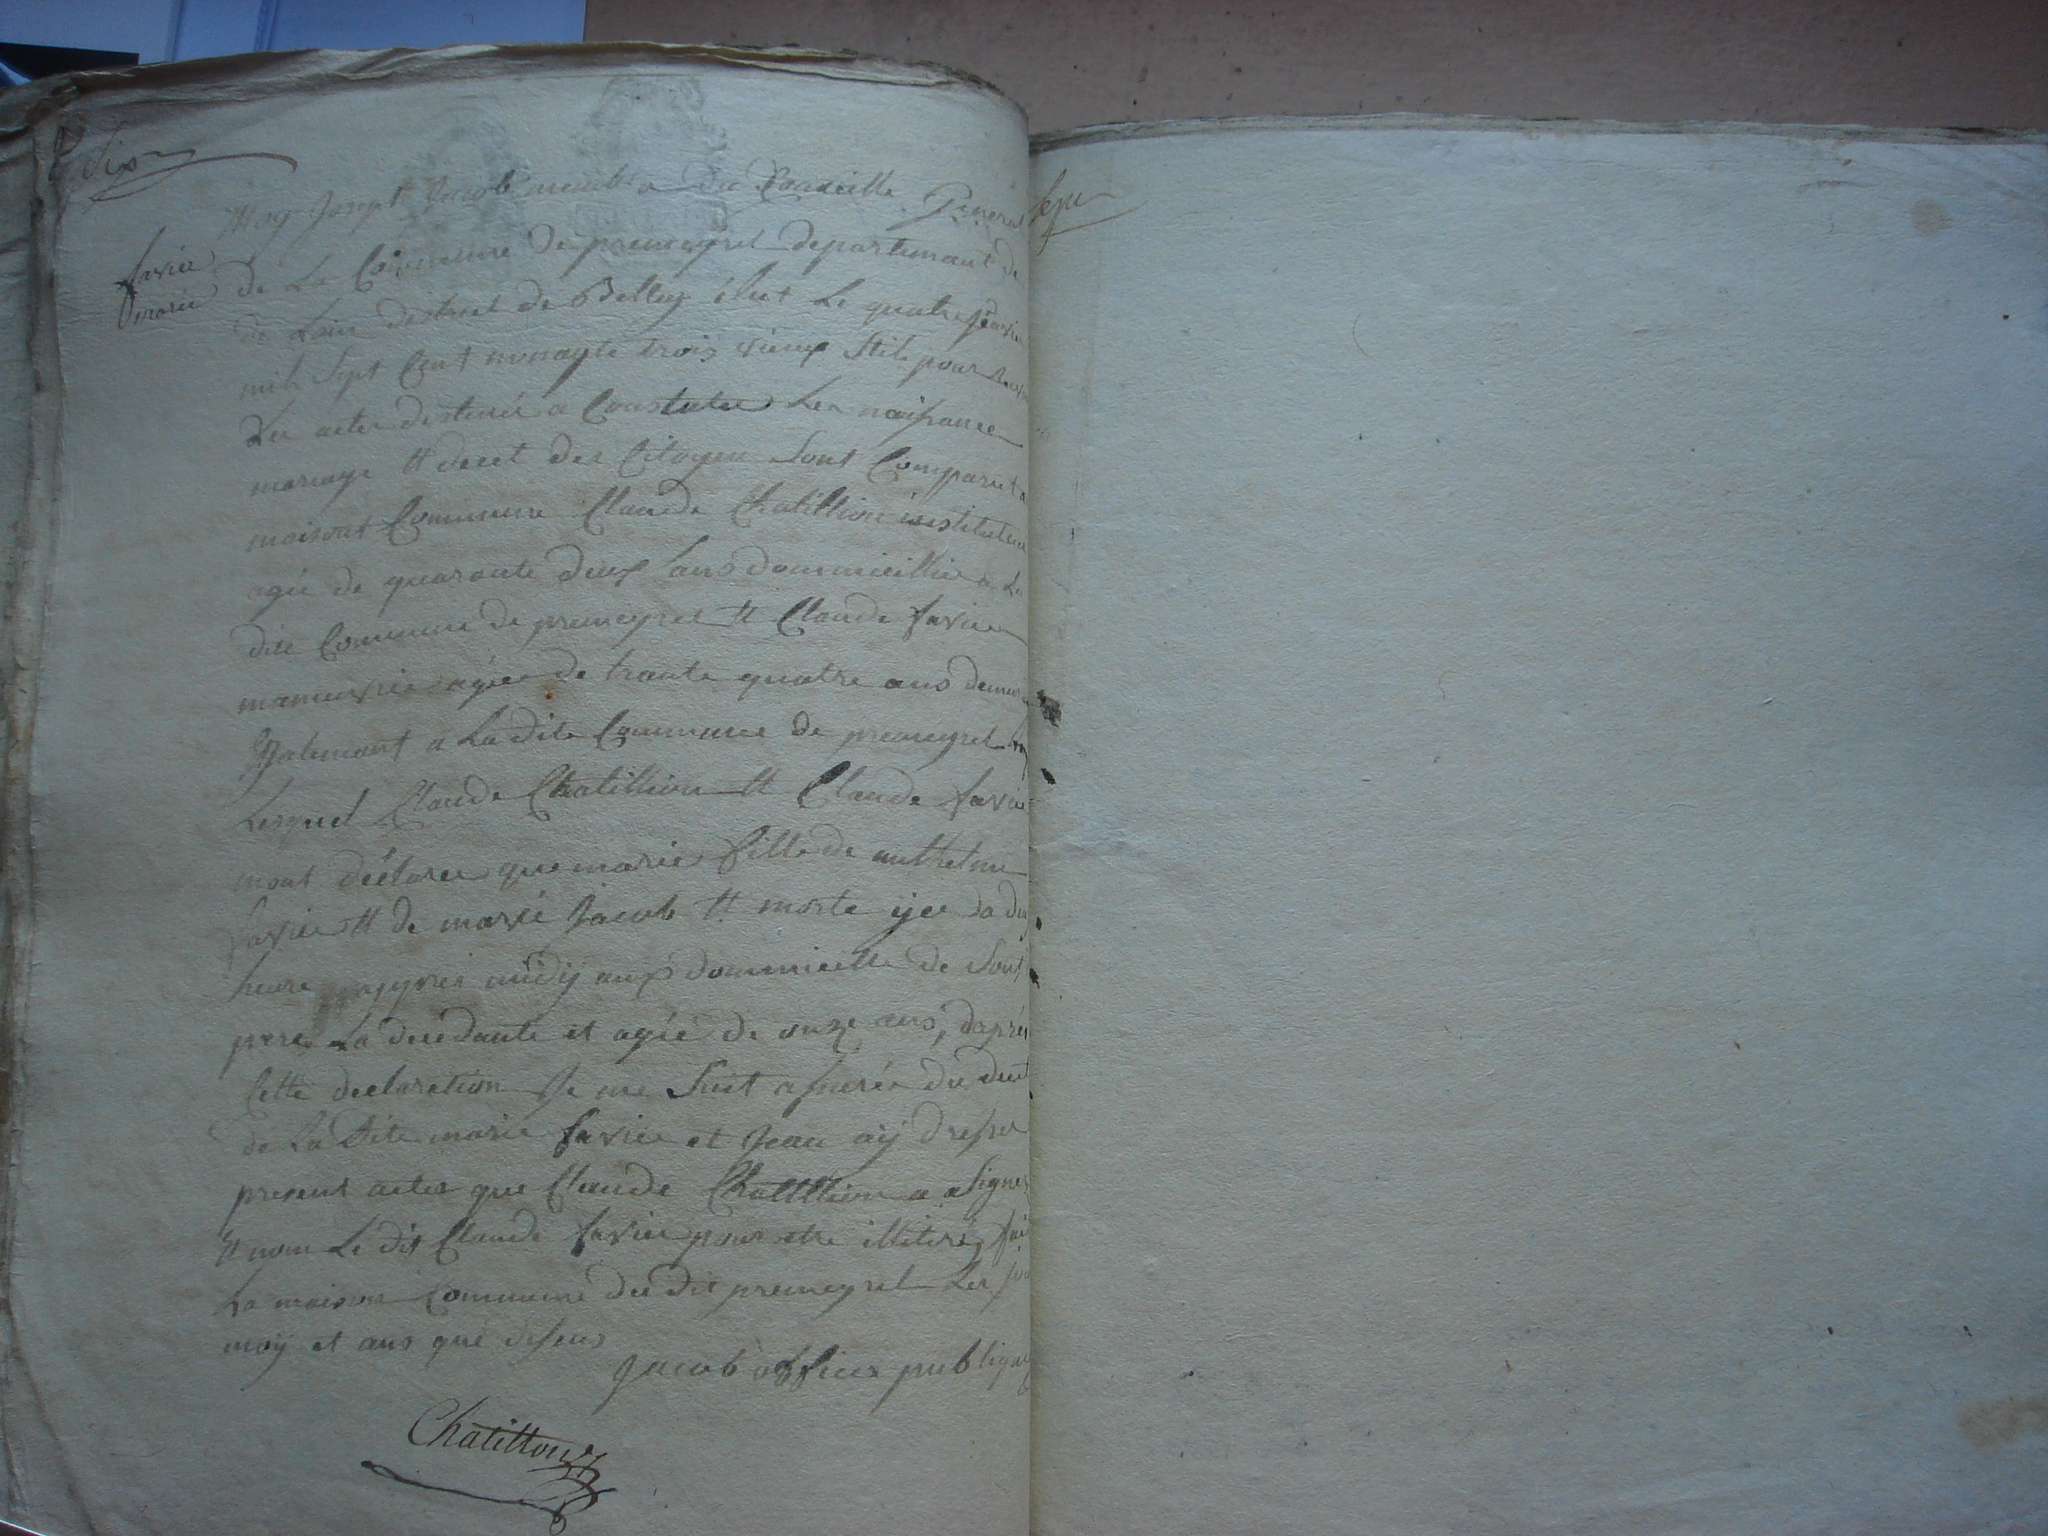 Six
Sept
favier
marie
Moy Josept Jacob membre du Conseille General
de La Commune de premeyzel departemant de
de Lain destrict de Belley élut Le quatre Janvier
mil Sept Cent nonante trois vieux Stile pour
Les actes destinés a Constater Les naissance
mariage et decet des Citoyen Sont Comparut a
maisont Commune Claude Chatillion instituteur
agée de quarante deux ans dommicillié a La
dite Commune de premeyzel et Claude favier
manuvrier agée de trante quatre ans demeurant
Egalemant a La dite Commune de premeyzel
Lesquel Claude Chatillion et Claude favier
mont déclaree que marie fille de anthelme
favier et de marie Jacob et morte yer a dix
heure appres midy aux dommicille de Sont
pere La decedante et agée de onze ans, dapres
Cette declaration Je me Suit assurée du decet
de La dite marie favier et Jean aÿ dresser
present actes que Claude Chatillion a Signer
et nom Le dit Claude favier pour etre illiteré, fait
La maison Commune du dit premeyzel Les jour
moÿ et ans que desus
Jacob officier publique
Chatillon